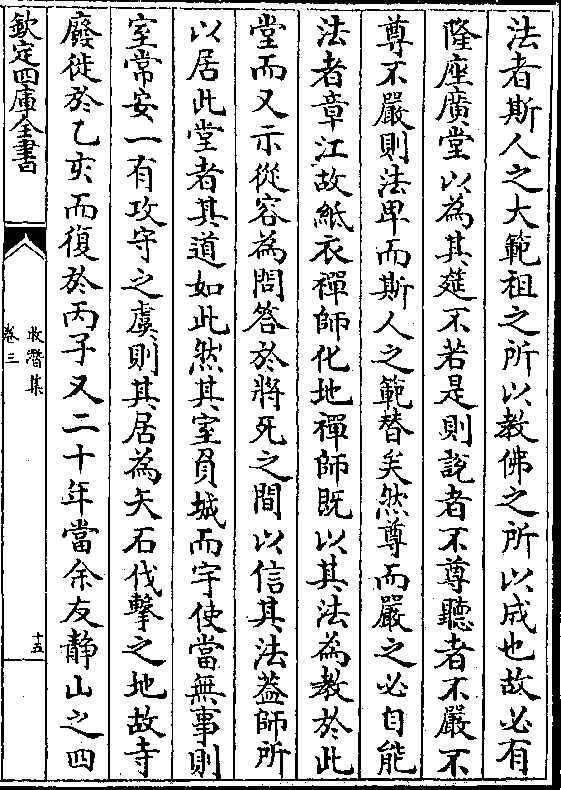 法者斯人之大範祖之所以教佛之所以成也故必有
隆座廣堂以為其筵不若是則說者不尊聽者不嚴不
尊不嚴則法卑而斯人之範替矣然尊而嚴之必自能
法者章江故紙衣禪師化地禪師既以其法為教於此
堂而又示從容為問答於將死之間以信其法葢師所
以居此堂者其道如此然其室負城而宇使當無事則
室常安一有攻守之虞則其居為矢石伐擊之地故寺
廢徙於乙亥而復於丙子又二十年當余友静山之四
欽定四庫全書
牧潛集
卷三
十五